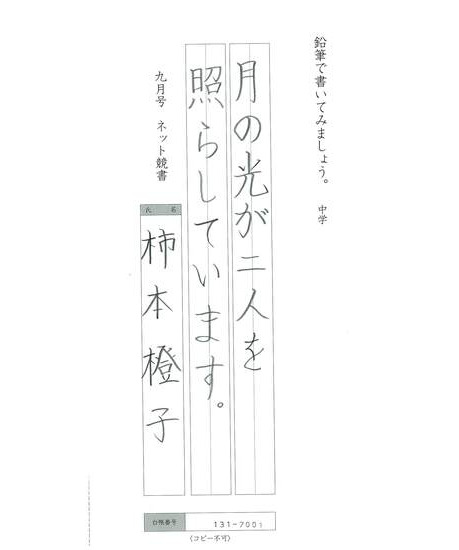 鉛筆で書いてみましょう。 中学
月の光が二人を
照らしています。
九月号 ネット競書
氏名
柿本橙子
台帳番号 131-7001
(コピー不可)